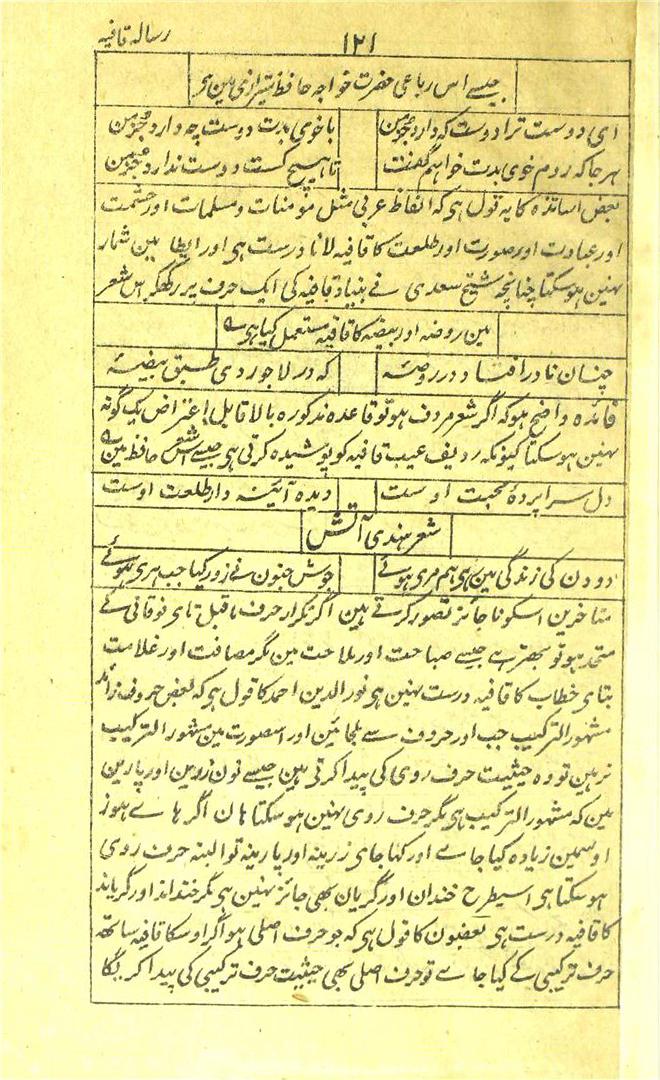 رسالہ قافیہ
۱۲۱
جیسے اس رباعی حضرت خواجہ حافظ شیرازی مین ہی
ای دوست ترا دوست کہ دارد
باخوی بدت دوست چہ دارد
ہر جا کہ روم خوی بدت خواہم گفت
تا ہیچ کست دوست ندارد
بعض اساتذہ کا یہ قول ہی کہ الفاظ عربی مثل مؤمنات و مسلمات اور حشمت
اور عبادت اور صورت اور طلعت کا قافیہ لانا درست ہی اور ایطا مین شمار
نہین ہو سکتا چنانچہ شیخ سعدی نے بنیاد قافیہ کی ایک حرف پر رکھکر اس شعر
مین روضہ اور بیضہ کا قافیہ مستعمل کیا ہی
چنان نادر افتاد در روضۂ
کہ در لاجوردی طبق بیضۂ
فائدہ واضح ہو کہ اگر شعر مردف ہو تو قاعدہ مذکورہ بالا قابل اعتراض یک گونہ
نہین ہو سکتا کیونکہ ردیف عیب قافیہ کو پوشیدہ کرتی ہی جیسے اس شعر حافظ مین
دل سراپردۂ محبت اوست
دیدہ آئینہ دار طلعت اوست
شعر ہندی آتش
دو دن کی زندگی مین رہی ہم مری ہوئے
جوش جنون نے زور کیا جب ہری ہوئے
متاخرین اسکو ناجائز تصور کرتے ہین اگر تکرار حرف ماقبل تای فوقانی کے
متحد ہو تو بہتر ہے جیسے صباحت اور ملاحت مین مگر مصافت اور علامت
بتای خطاب کا قافیہ درست نہین ہی نور الدین احمد کا قول ہی کہ بعض حروف زائد
مشہور الترکیب جب اور حروف سے ملجائین اور اسصورت مین مشہور الترکیب
نرہین تو وہ حیثیت حرف روی کی پیدا کرتی ہین جیسے نون زرین اور پارین
مین کہ مشہور الترکیب ہی مگر حرف روی نہین ہو سکتا ہان اگر ہاے ہوز
اوسمین زیادہ کیا جاے اور کہا جای زرینہ اور پارینہ تو البتہ حرف روی
ہو سکتا ہی اسیطرح خندان اور گریان بھی جائز نہین ہی مگر خنداند اور گریاند
کا قافیہ درست ہی بعضون کا قول ہی کہ جو حرف اصلی ہو اگر اوسکا قافیہ ساتھ
حرف ترکیبی کے کیا جاے تو حرف اصلی بھی حیثیت حرف ترکیبی کی پیدا کریگا